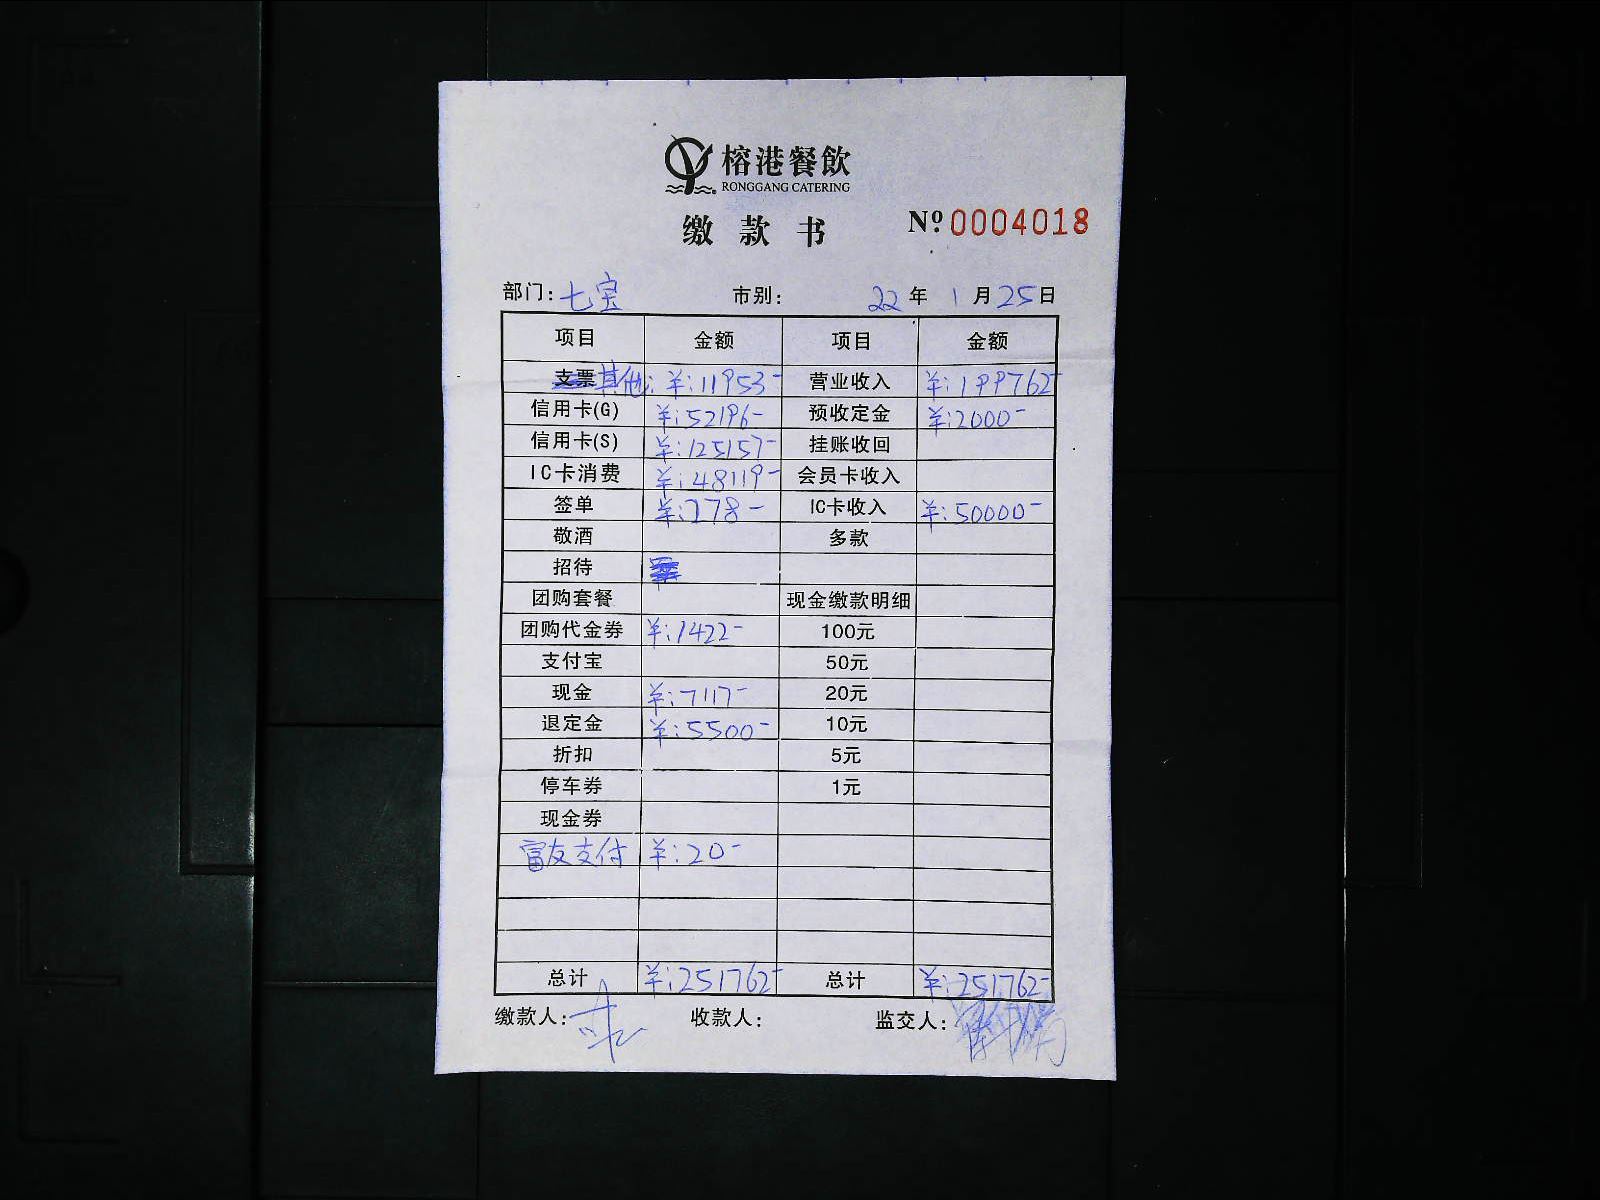 榕港餐飲
RONGGANG CATERING
缴款书
Nº 0004018
部门: 七宝 市别: 22年 1月25日
项目 金额 项目 金额
支票 其他: ¥:11953- 营业收入 ¥:199762-
信用卡(G) ¥:52196- 预收定金 ¥:2000-
信用卡(S) ¥:125157- 挂账收回
IC卡消费 ¥:48119- 会员卡收入
签单 ¥:278- IC卡收入 ¥:50000-
敬酒 多款
招待
团购套餐 现金缴款明细
团购代金券 ¥:1422- 100元
支付宝 50元
现金 ¥:7117- 20元
退定金 ¥:5500- 10元
折扣 5元
停车券 1元
现金券
富友支付 ¥:20-
总计 ¥:251762- 总计 ¥:251762-
缴款人: 收款人: 监交人: